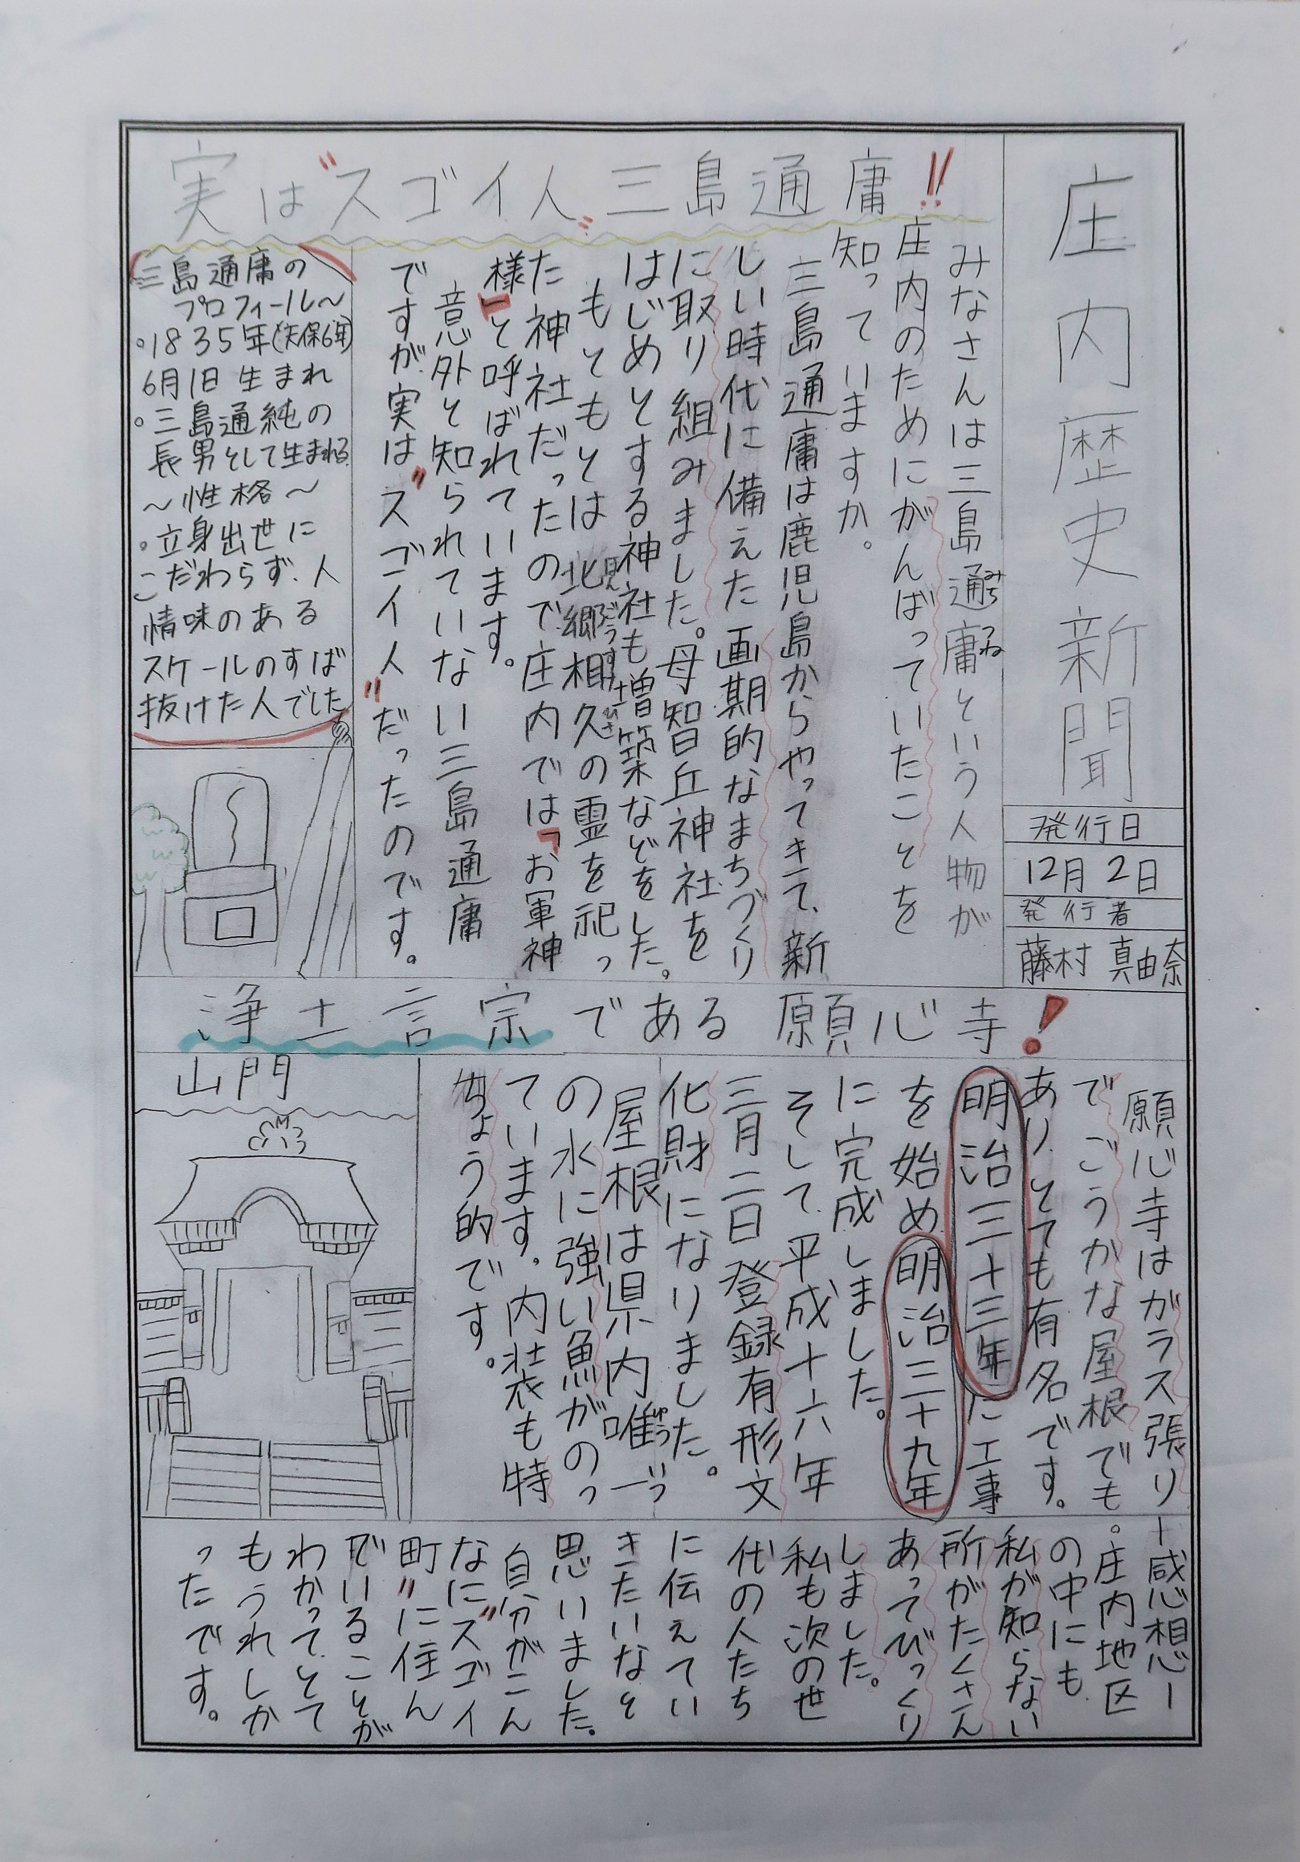 庄内歴史新聞
発行日
12月2日
発行者
藤村 真由奈
実は"スゴイ人"三島通庸!!
みなさんは三島通庸という人物が
みち
つね
庄内のためにがんばっていたことを
知っていますか。
三島通庸は鹿児島からやってきて、新
しい時代に備えた画期的なまちづくり
に取り組みました。母智丘神社を
はじめとする神社も増築などをした。
もともとは北郷相久の霊を祀っ
た神社だったので庄内では「お軍神
様」と呼ばれています。
意外と知られていない三島通庸
ですが、実は"スゴイ人"だったのです。
三島通庸の
プロフィール〜
・1835年(天保6年)
6月1日生まれ
・三島通純の
長男として生まれる
〜性格〜
・立身出世に
こだわらず、人
情味のある
スケールのずば
抜けた人でした
浄土言宗である願心寺!
願心寺はガラス張り
でごうかな屋根でも
あり、とても有名です。
明治三十三年に工事
を始め、明治三十九年
に完成しました。
そして、平成十六年
三月二日登録有形文
化財になりました。
屋根は県内唯一
ゆいいつ
の水に強い魚がのっ
ています。内装も特
ちょう的です。
山門
ー感想ー
。庄内地区
の中にも
私が知らない
所がたくさん
あってびっくり
しました。
私も次の世
代の人たち
に伝えてい
きたいなと
思いました。
自分がこん
なに"スゴイ
町"に住ん
でいることが
わかってとて
もうれしか
ったです。